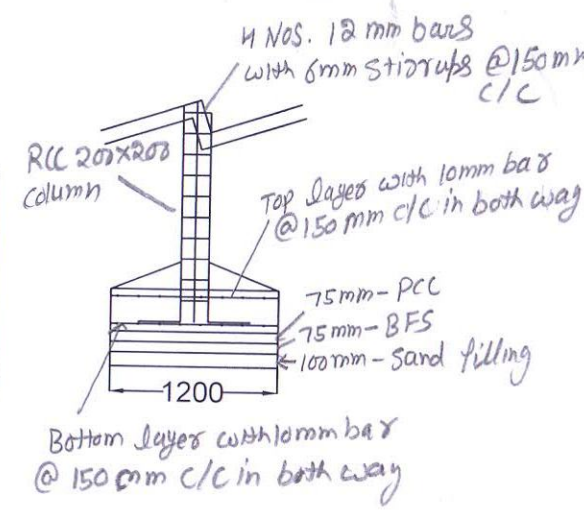 4 NOS. 12 mm bars
with 6mm stirrups @150 mm
C/C
RCC 200x200
Column
Top layer with 10mm bar
@150 mm c/c in both way
75mm-PCC
75mm-BFS
100mm-Sand filling
1200
Bottom layer with 10mm bar
@ 150 mm c/c in both way